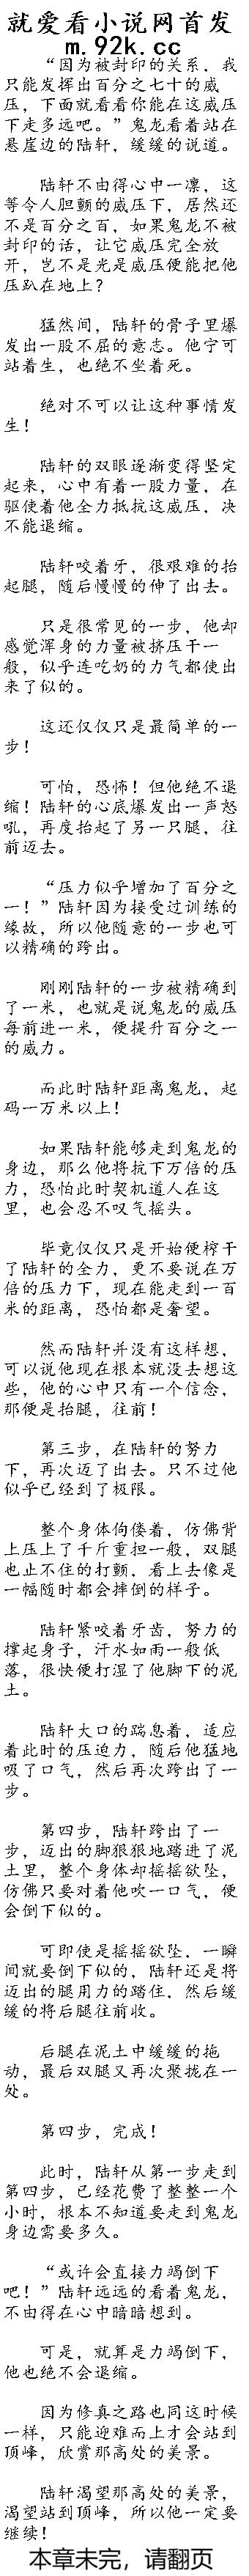 就爱看小说网首发
m.92k.cc
“因为被封印的关系，我
只能发挥出百分之七十的威
压，下面就看看你能在这威压
下走多远吧。”鬼龙看着站在
悬崖边的陆轩，缓缓的说道。
陆轩不由得心中一凛，这
等令人胆颤的威压下，居然还
不是百分之百，如果鬼龙不被
封印的话，让它威压完全放
开，岂不是光是威压便能把他
压趴在地上？
猛然间，陆轩的骨子里爆
发出一股不屈的意志。他宁可
站着生，也绝不坐着死。
绝对不可以让这种事情发
生！
陆轩的双眼逐渐变得坚定
起来，心中有着一股力量，在
驱使着他全力抵抗这威压，决
不能退缩。
陆轩咬着牙，很艰难的抬
起腿，随后慢慢的伸了出去。
只是很常见的一步，他却
感觉浑身的力量被挤压干一
般，似乎连吃奶的力气都使出
来了似的。
这还仅仅只是最简单的一
步！
可怕，恐怖！但他绝不退
缩！陆轩的心底爆发出一声怒
吼，再度抬起了另一只腿，往
前迈去。
“压力似乎增加了百分之
一！”陆轩因为接受过训练的
缘故，所以他随意的一步也可
以精确的跨出。
刚刚陆轩的一步被精确到
了一米，也就是说鬼龙的威压
每前进一米，便提升百分之一
的威力。
而此时陆轩距离鬼龙，起
码一万米以上！
如果陆轩能够走到鬼龙的
身边，那么他将抗下万倍的压
力，恐怕此时契机道人在这
里，也会忍不叹气摇头。
毕竟仅仅只是开始便榨干
了陆轩的全力，更不要说在万
倍的压力下，现在能走到一百
米的距离，恐怕都是奢望。
然而陆轩并没有这样想，
可以说他现在根本就没去想这
些，他的心中只有一个信念，
那便是抬腿，往前！
第三步，在陆轩的努力
下，再次迈了出去。只不过他
似乎已经到了极限。
整个身体佝偻着，仿佛背
上压上了千斤重担一般，双腿
也止不住的打颤，看上去像是
一幅随时都会摔倒的样子。
陆轩紧咬着牙齿，努力的
撑起身子，汗水如雨一般低
落，很快便打湿了他脚下的泥
土。
陆轩大口的踹息着，适应
着此时的压迫力，随后他猛地
吸了口气，然后再次跨出了一
步。
第四步，陆轩跨出了一
步，迈出的脚狠狠地踏进了泥
土里，整个身体却摇摇欲坠，
仿佛只要对着他吹一口气，便
会倒下似的。
可即使是摇摇欲坠，一瞬
间就要倒下似的，陆轩还是将
迈出的腿用力的踏住，然后缓
缓的将后腿往前收。
后腿在泥土中缓缓的拖
动，最后双腿又再次聚拢在一
处。
第四步，完成！
此时，陆轩从第一步走到
第四步，已经花费了整整一个
小时，根本不知道要走到鬼龙
身边需要多久。
“或许会直接力竭倒下
吧！”陆轩远远的看着鬼龙，
不由得在心中暗暗想到。
可是，就算是力竭倒下，
他也绝不会退缩。
因为修真之路也同这时候
一样，只能迎难而上才会站到
顶峰，欣赏那高处的美景。
陆轩渴望那高处的美景，
渴望站到顶峰，所以他一定要
继续！
本章未完，请翻页